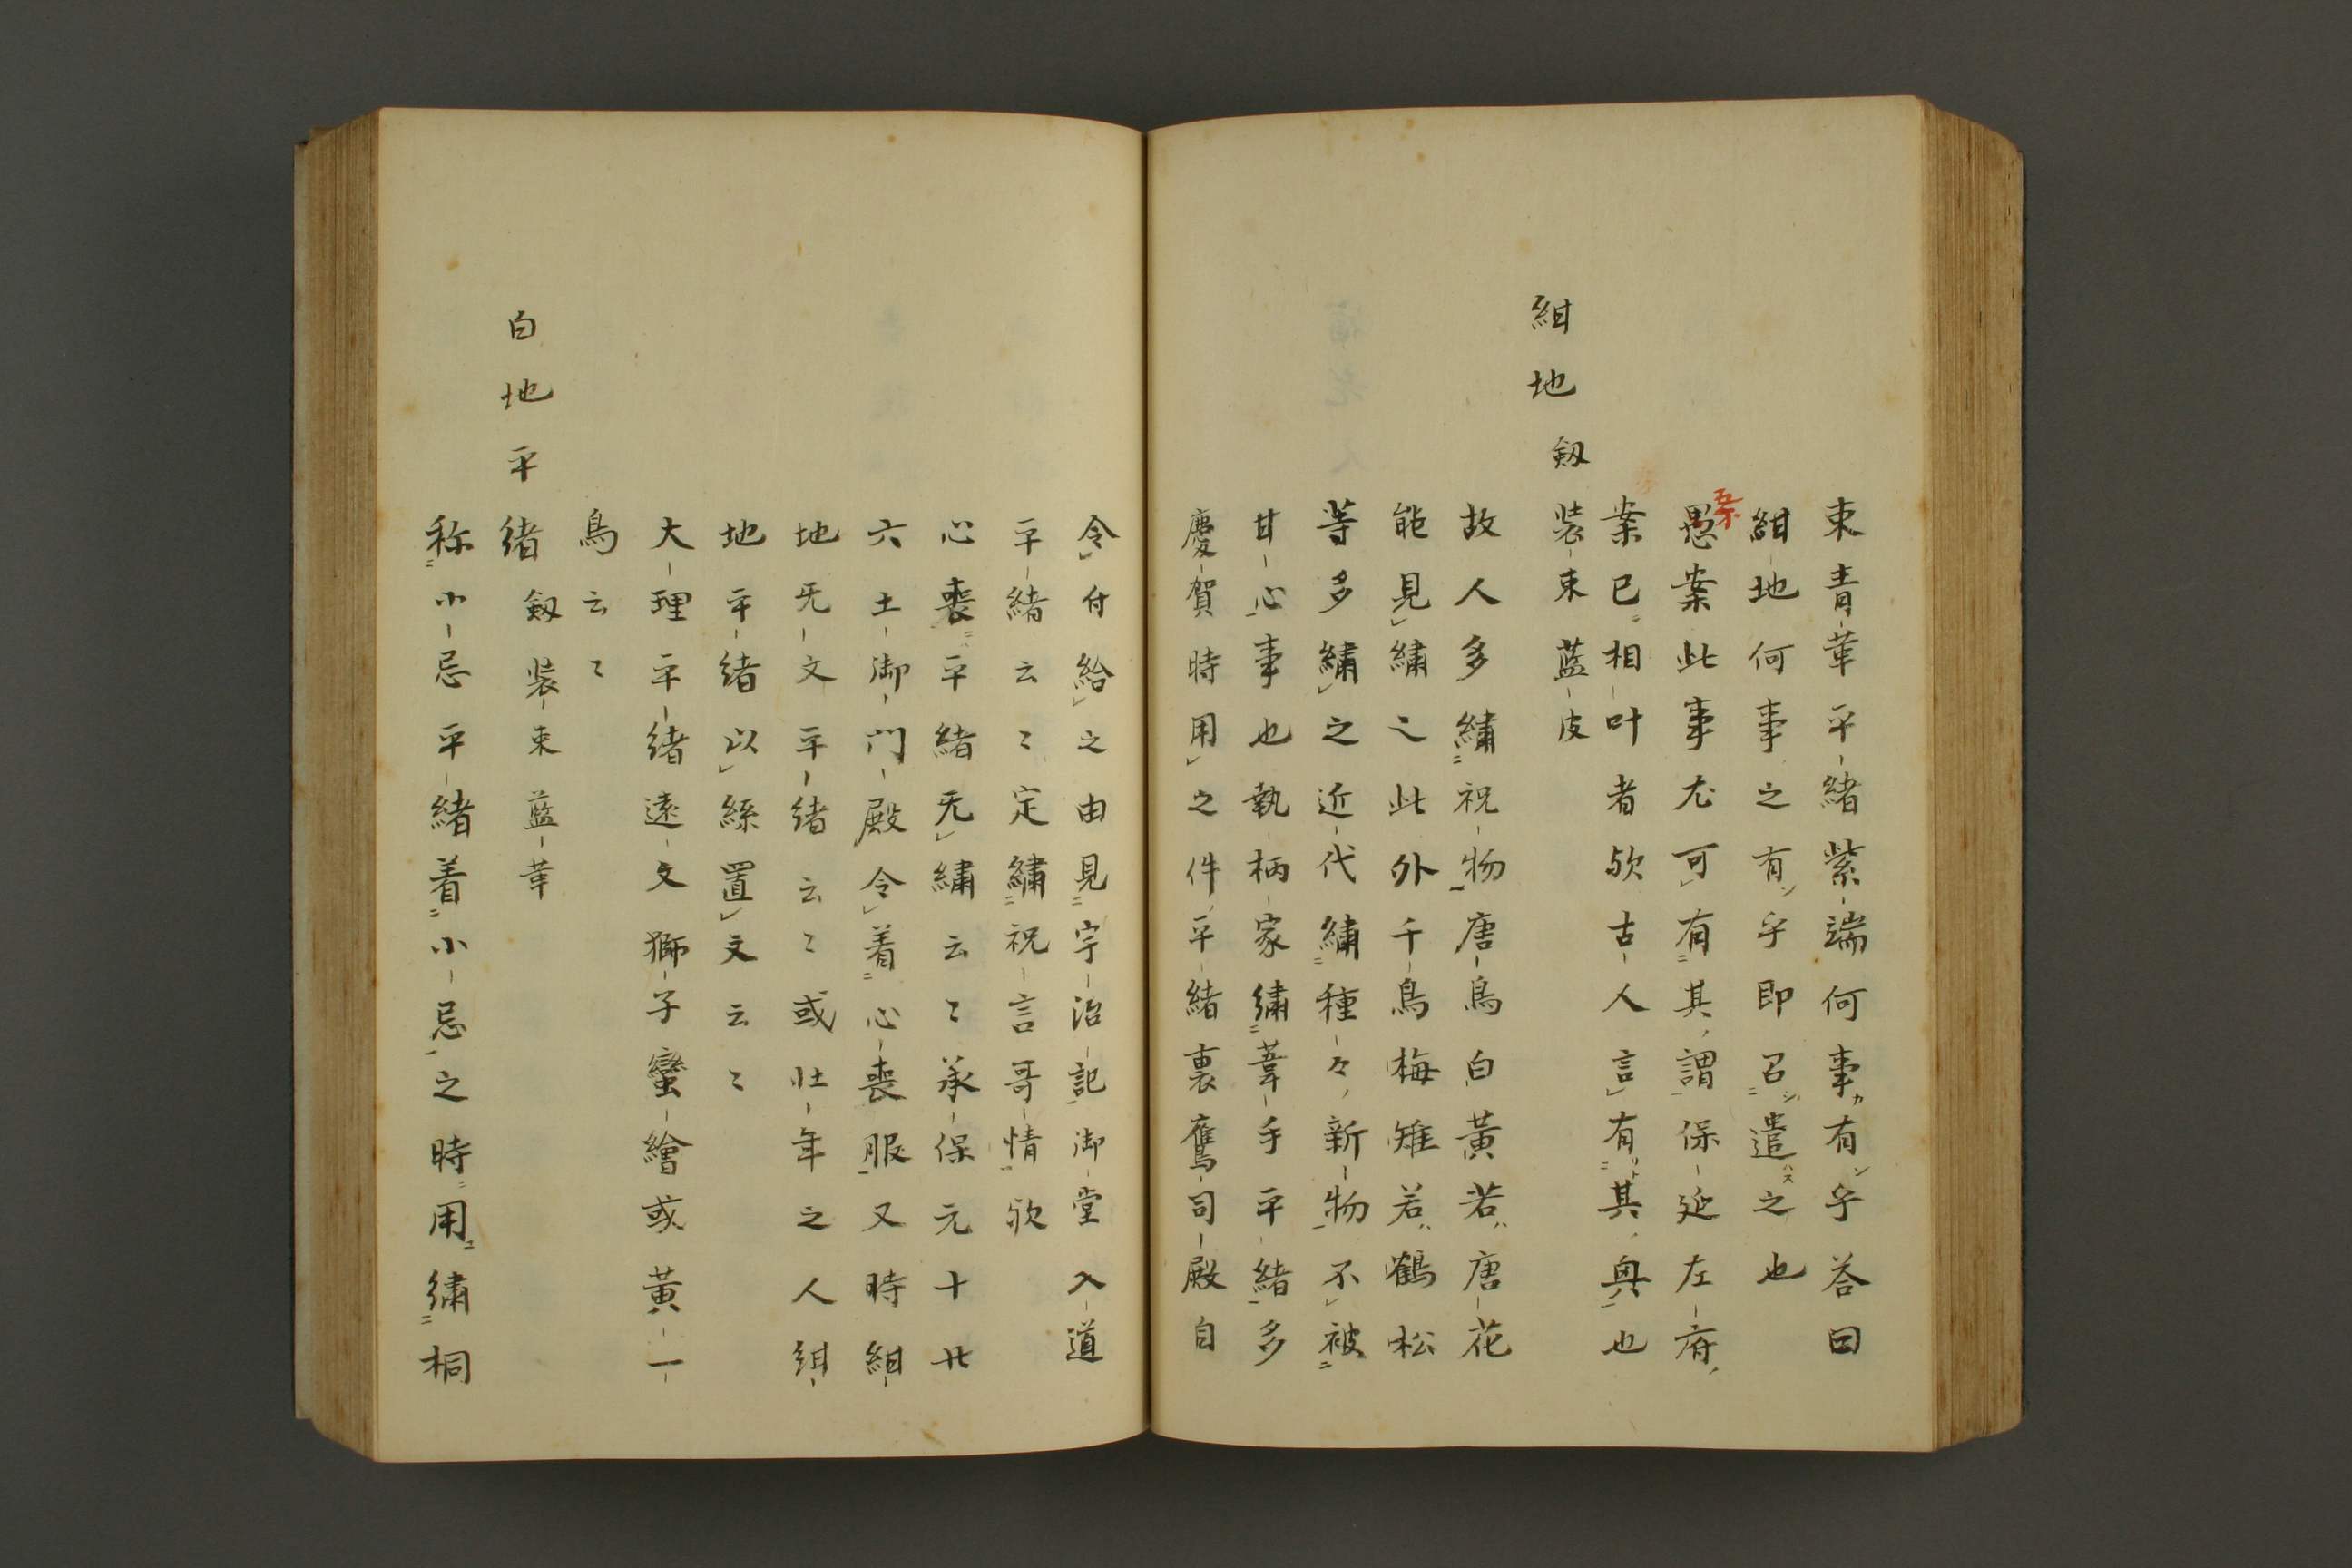 束青革平緒紫端何事カ有ン乎答曰
紺地何事之有ン乎即召シ遣ハス之也
愚案此事尤可有其謂保延左府
案已相叶者欤古人言有リト其興也
紺地劔装束藍皮
故人多繍祝物唐鳥白黄若ハ唐花
能見繍之此外千鳥梅雉若ハ鶴松
等多繍之近代繍種々新物不被
甘心事也執柄家繍葦手平緒多
慶賀時用之件平緒裏鷹司殿自
令付給之由見宇治記御堂入道
平緒云〻定繍祝言哥情欤
心喪ニハ平緒无繍云〻承保元十廿
六土御門殿令着心喪服又時紺
地无文平緒云〻或壮年之人紺
地平緒以絲置文云〻
大理平緒遠文獅子蠻繪或黄一
鳥云〻
白地平緒劔装束藍革
称小忌平緒着小忌之時用繍桐